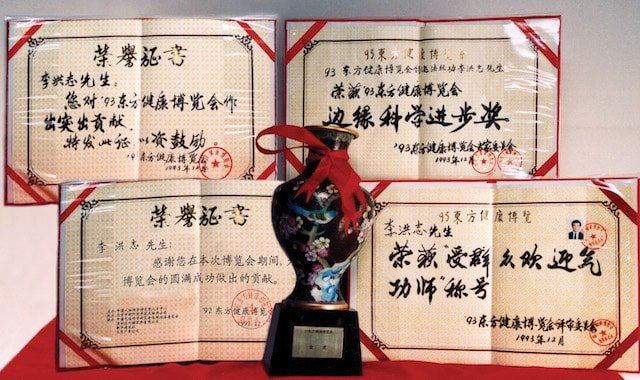 荣誉证书
李洪志先生:
您对'93东方健康博览会作
出突出贡献.
特发此证,以资鼓励。
'93东方健康博览会
1993.12
93東方健康博览会
93东方健康博览会
李洪志先生
荣获'93东方健康博览会
边缘科学进步奖
'93东方健康博览会
1993年12月
荣誉证书
李洪志先生:
感谢您在本次博览会期间,
博览会的圆满成功做出的贡献。
'92东方健康
1992.12
93東方健康博览
李洪志先生
荣获"受群众欢迎气
功师"称号
93东方健康博览会评审委员会
1993年12月